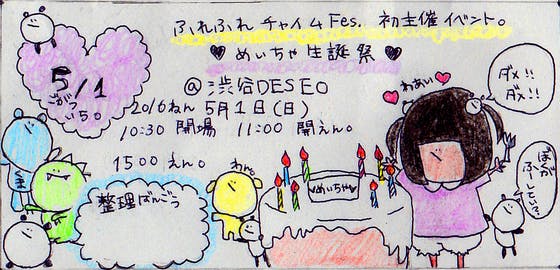 ふれふれ チャイム Fes. 初主催イベント。
♥ めいちゃ生誕祭 ♥
@渋谷DESEO
2016ねん 5月1日(日)
10:30 開場 11:00 開えん。
1500えん。
5/1
ごがつ
いっぴ。
整理ばんごう
くま
わん。
♥めいちゃ♥
わあい
ダメ!!
ダメ!!